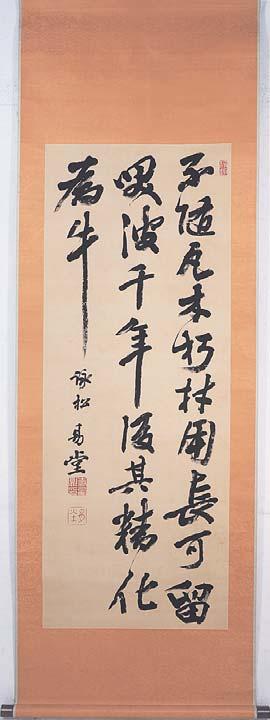 不隨凡木朽材用長可留
千年後其精化
為牛
詠松 易堂